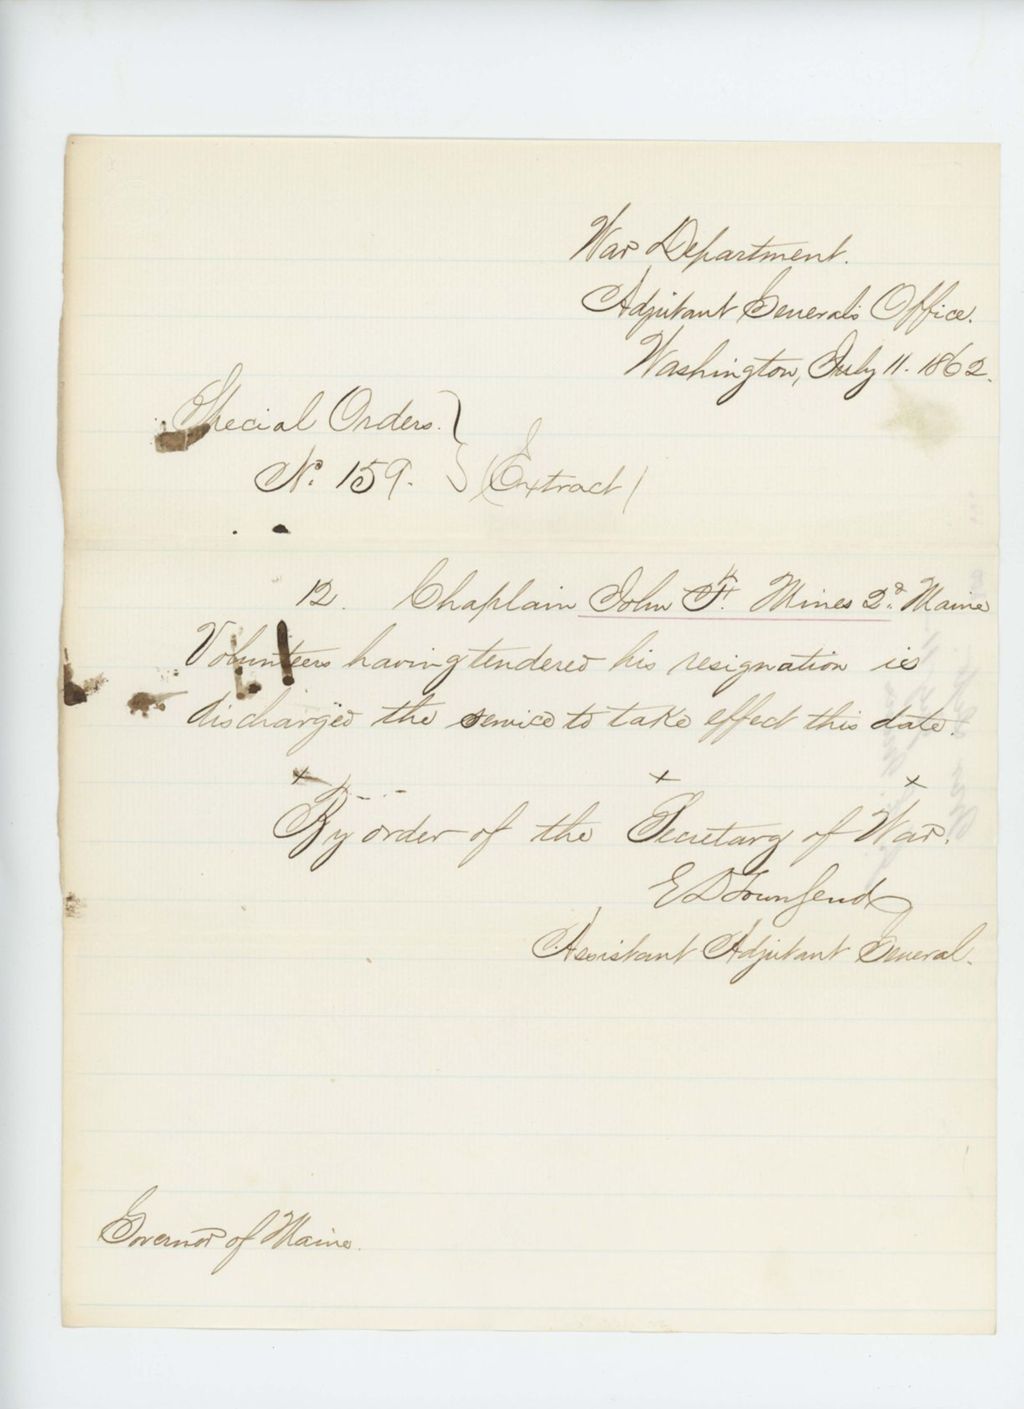 War Department.
Adjutant General's Office.
Washington, July 11. 1862.
Special Orders. }
No. 159. } (Extract)
12. Chaplain John F. Mines 2d. Maine
Volunteers having tendered his resignation is
discharged the service to take effect this date.
x x x
By order of the Secretary of War.
E D Townsend
Assistant Adjutant General.
Governor of Maine.